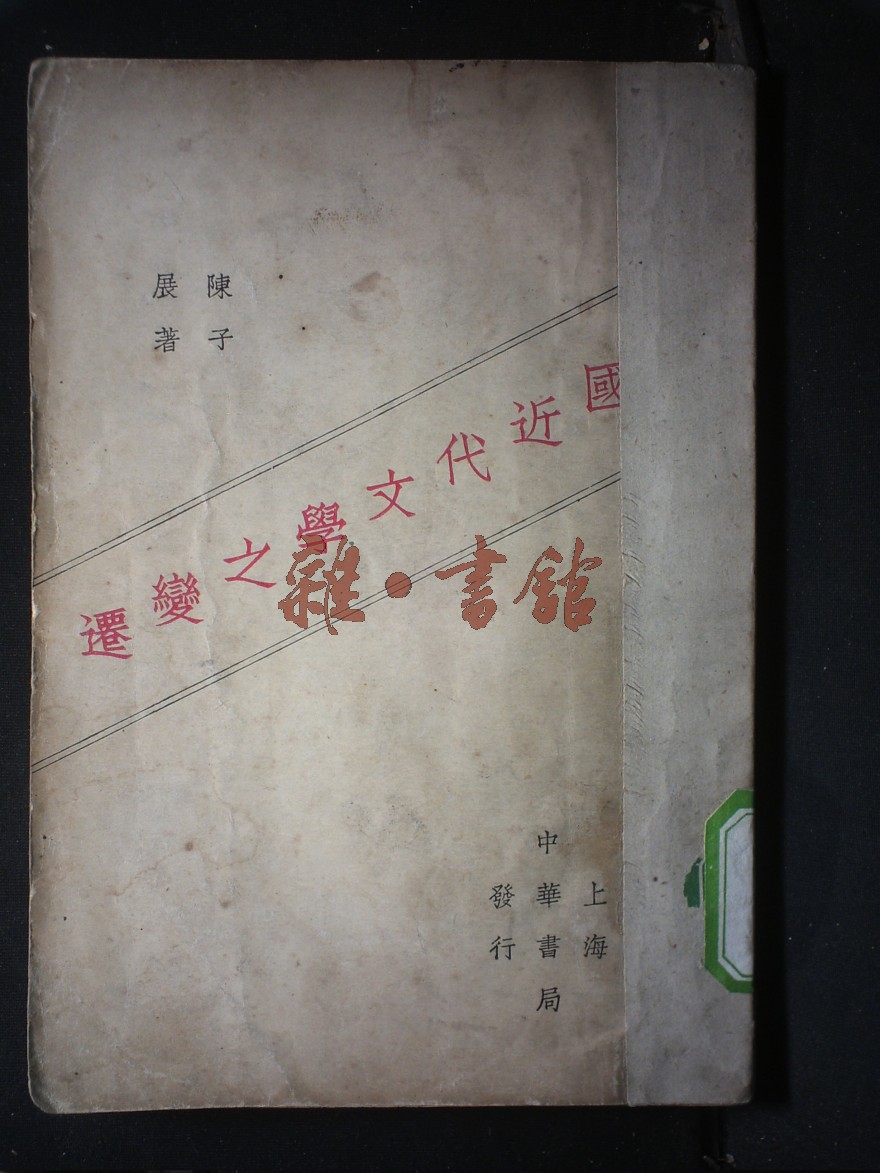 陳子
展著
國近代文學之變遷
雜·書館
上海
中華書局
發行